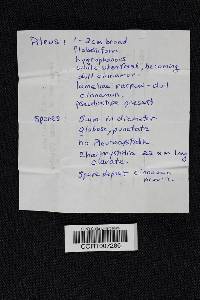 Pileus: 1-2cm broad
flabelliform
hygrophanous
white when fresh, becoming
dull cinnamon
lamellae narrow - dull
cinnamon.
pseudostipe present
Spores: 5um in diameter
globose, punctate
no Pleurocystidia
Cheilocystidia 23 um long
clavate.
Spore deposit - cinnamon